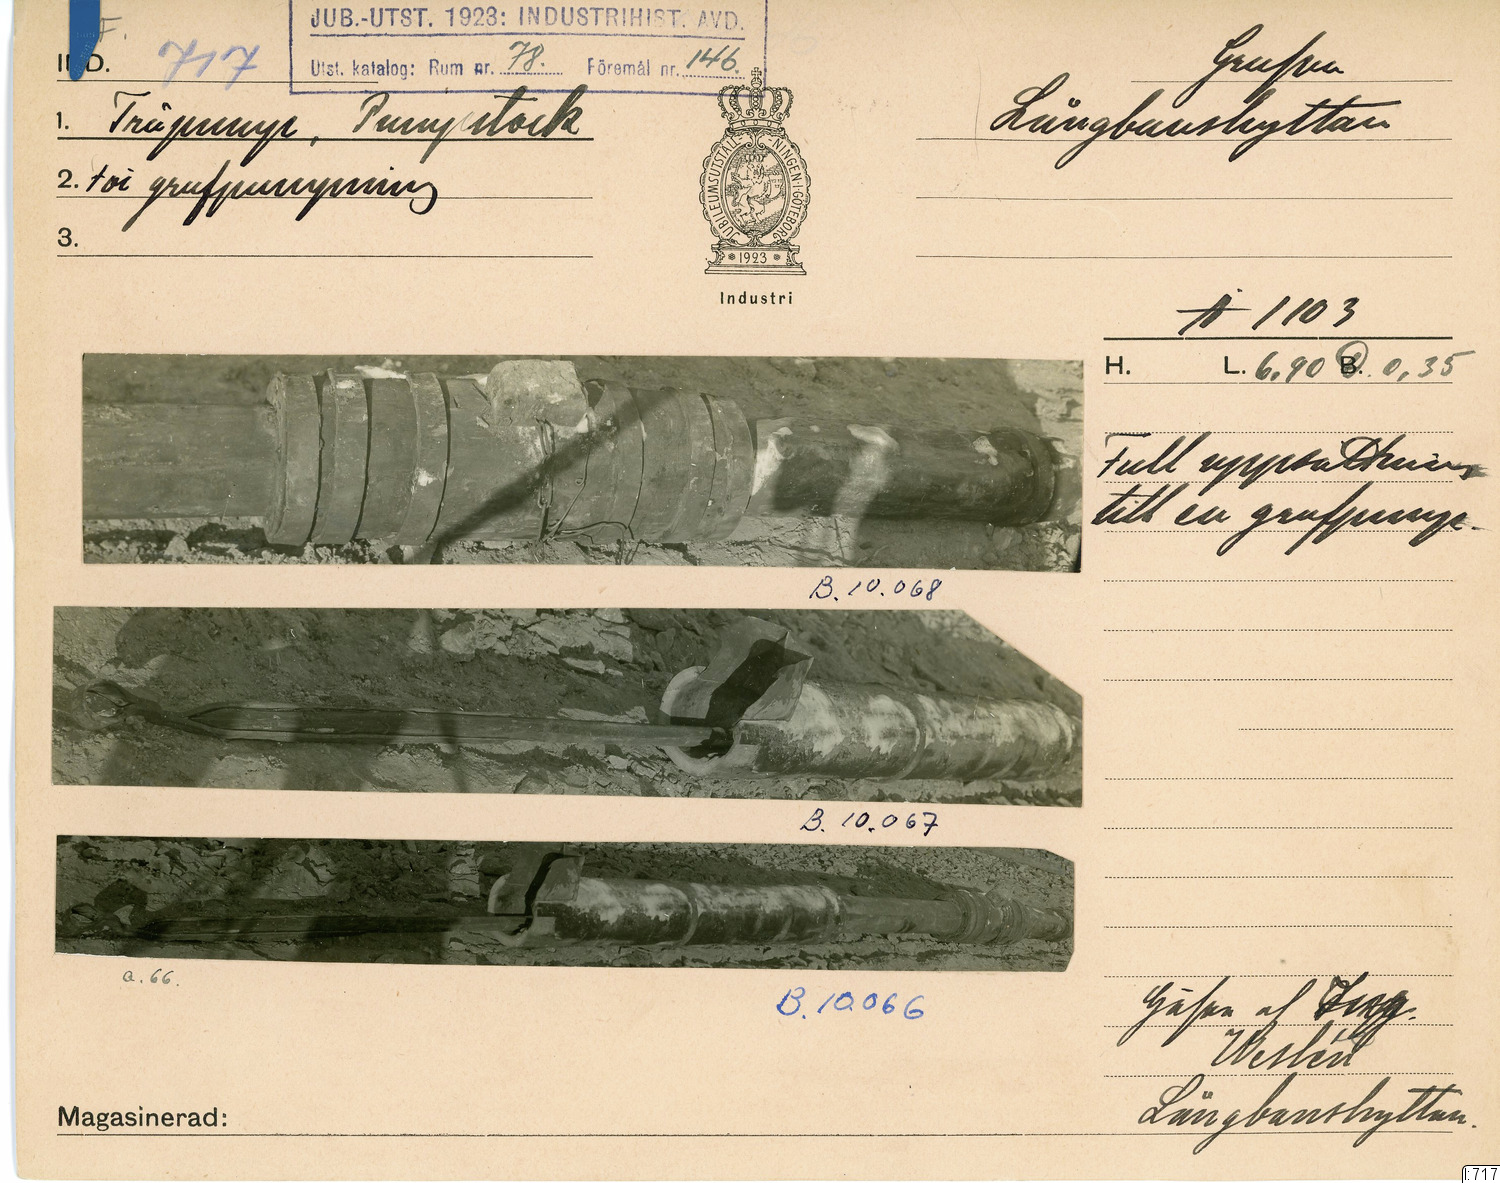 JUB.-UTST. 1923: INDUSTRIHIST. AVD.
Utst. katalog: Rum nr. 78. Föremål nr. 146.
F.
IND. 717
1. Träpump, Pumpstock
2. för grufpumpning
3.
JUBILEUMSUTSTÄLLNINGEN I GÖTEBORG
1923
Industri
Grufva
Långbanshyttan
N 1103
H. L. 6,90 B. 0,35
Full uppsättning
till en grufpump.
B. 10.068
B. 10.067
a. 66.
B. 10066
Gåfva af Ing.
Weslén
Långbanshyttan.
Magasinerad:
I:717